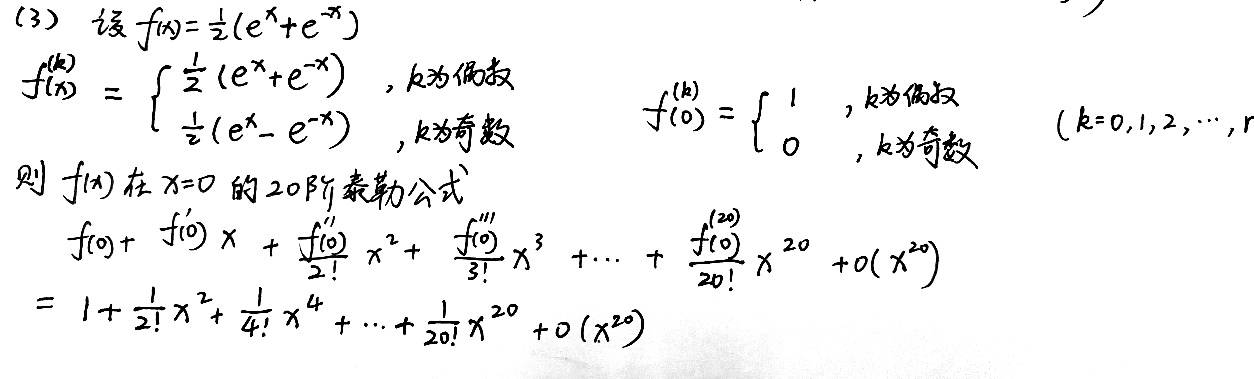 (3) 设 f(x)=\frac{1}{2}(e^x+e^{-x})
f^{(k)}(x) = \begin{cases} \frac{1}{2}(e^x+e^{-x}) & ,k为偶数 \\ \frac{1}{2}(e^x-e^{-x}) & ,k为奇数 \end{cases} f^{(k)}(0) = \begin{cases} 1 & ,k为偶数 \\ 0 & ,k为奇数 \end{cases} (k=0,1,2,⋯,
则 f(x) 在 x=0 的 20阶泰勒公式
f(0)+f'(0)x+\frac{f''(0)}{2!}x^2+\frac{f'''(0)}{3!}x^3+⋯+\frac{f^{(20)}(0)}{20!}x^{20}+o(x^{20})
=1+\frac{1}{2!}x^2+\frac{1}{4!}x^4+⋯+\frac{1}{20!}x^{20}+o(x^{20})